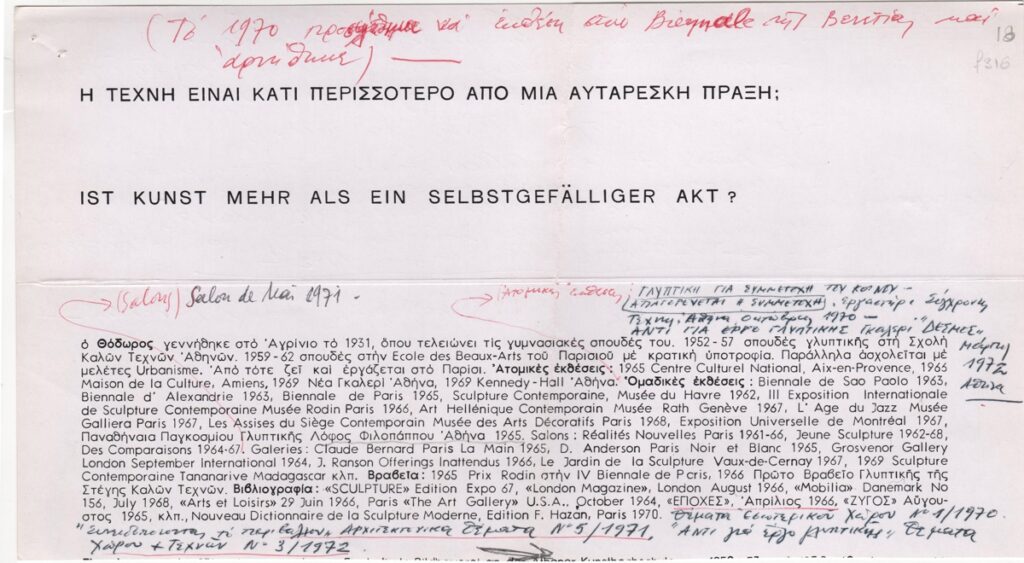 (Τό 1970 να έκθεση στην Biennale της Βενετίας και
αρνήθηκε)
18
f316
Η ΤΕΧΝΗ ΕΙΝΑΙ ΚΑΤΙ ΠΕΡΙΣΣΟΤΕΡΟ ΑΠΟ ΜΙΑ ΑΥΤΑΡΕΣΚΗ ΠΡΑΞΗ;
IST KUNST MEHR ALS EIN SELBSTGEFÄLLIGER AKT ?
(Salons) Salon de Mai 1971 -
(Ατομικές εκθέσεις) ΓΛΥΠΤΙΚΗ ΓΙΑ ΣΥΜΜΕΤΟΧΗ ΤΟΥ ΚΟΙΝΟΥ -
ΑΠΑΓΟΡΕΥΕΤΑΙ Η ΣΥΜΜΕΤΟΧΗ, Εργαστήρι Σύγχρονης
Τέχνης. Αθήνα Οκτώβρης 1970 -
ΑΝΤΙ ΓΙΑ ΕΡΓΟ ΓΛΥΠΤΙΚΗΣ Γκαλερί "ΔΕΣΜΟΣ"
Μάρτης
1972
Αθήνα
ὁ Θόδωρος γεννήθηκε στό Ἀγρίνιο τό 1931, ὅπου τελειώνει τίς γυμνασιακές σπουδές του. 1952-57 σπουδές γλυπτικῆς στή Σχολή
Καλῶν Τεχνῶν Ἀθηνῶν. 1959-62 σπουδές στήν Ecole des Beaux-Arts τοῦ Παρισιοῦ μέ κρατική ὑποτροφία. Παράλληλα ἀσχολεῖται μέ
μελέτες Urbanisme. Ἀπό τότε ζεῖ καί ἐργάζεται στό Παρίσι. Ἀτομικές ἐκθέσεις : 1965 Centre Culturel National, Aix-en-Provence, 1966
Maison de la Culture, Amiens, 1969 Νέα Γκαλερί Ἀθήνα, 1969 Kennedy-Hall Ἀθήνα. Ὁμαδικές ἐκθέσεις : Biennale de Sao Paolo 1963,
Biennale d' Alexandrie 1963, Biennale de Paris 1965, Sculpture Contemporaine, Musée du Havre 1962, III Exposition Internationale
de Sculpture Contemporaine Musée Rodin Paris 1966, Art Hellénique Contemporain Musée Rath Genève 1967, L' Age du Jazz Musée
Galliera Paris 1967, Les Assises du Siège Contemporain Musée des Arts Décoratifs Paris 1968, Exposition Universelle de Montréal 1967,
Παναθήναια Παγκοσμίου Γλυπτικῆς Λόφος Φιλοπάππου Ἀθήνα 1965. Salons : Réalités Nouvelles Paris 1961-66, Jeune Sculpture 1962-68,
Des Comparaisons 1964-67. Galeries : Claude Bernard Paris La Main 1965, D. Anderson Paris Noir et Blanc 1965, Grosvenor Gallery
London September International 1964, J. Ranson Offerings Inattendus 1966, Le Jardin de la Sculpture Vaux-de-Cernay 1967, 1969 Sculpture
Contemporaine Tananarive Madagascar κλπ. Βραβεῖα : 1965 Prix Rodin στήν IV Biennale de Paris, 1966 Πρῶτο Βραβεῖο Γλυπτικῆς τῆς
Στέγης Καλῶν Τεχνῶν. Βιβλιογραφία : «SCULPTURE» Edition Expo 67, «London Magazine», London August 1966, «Mobilia» Danemark No
156, July 1968, «Arts et Loisirs» 29 Juin 1966, Paris «The Art Gallery» U.S.A., October 1964, «ΕΠΟΧΕΣ», Ἀπρίλιος 1966, «ΖΥΓΟΣ» Αὔγου-
στος 1965, κλπ., Nouveau Dictionnaire de la Sculpture Moderne, Edition F. Hazan, Paris 1970. Θέματα Εσωτερικού Χώρου Νο 1/1970.
το περιβάλλον" Αρχιτεκτονικά Θέματα Νο 5/1971, "Αντί για έργο γλυπτικής" Θέματα
Χώρου + Τεχνών Νο 3/1972